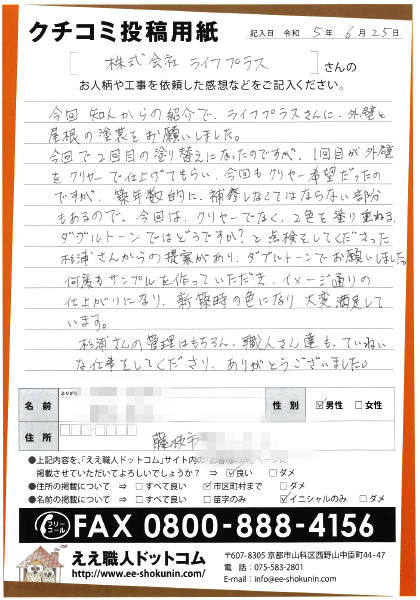 クチコミ投稿用紙
記入日 令和 5年 6月25日
株式会社 ライフプラス さんの
お人柄や工事を依頼した感想などをご記入ください。
今回 知人からの紹介で、ライフプラスさんに、外壁と
屋根の塗装をお願いしました。
今回で2回目の塗り替えになったのですが、1回目が外壁
をクリヤーで仕上げてもらい、今回もクリヤー希望だったの
ですが、築年数的に、補修しなくてはならない部分
もあるので、今回は、クリヤーでなく、2色を塗り重ねる、
ダブルトーンではどうですか?と点検をしてくださった
杉浦さんからの提案があり、ダブルトーンでお願いしました。
何度もサンプルを作っていただき、イメージ通りの
仕上がりになり、新築時の色になり大変満足して
います。
杉浦さんの管理はもちろん、職人さん達も、ていねい
な仕事をしてくださり、ありがとうございました。
名前
ふりがな
性別
男性 女性
住所
藤枝市
●上記内容を、「ええ職人ドットコム」サイト内の「お客様の声」ページに
掲載させていただいてよろしいでしょうか? ⇒ 良い ダメ
●住所の掲載について ⇒ すべて良い 市区町村まで ダメ
●名前の掲載について ⇒ すべて良い 苗字のみ イニシャルのみ ダメ
フリーコール FAX 0800-888-4156
ええ職人ドットコム
http://www.ee-shokunin.com/
〒607-8305 京都市山科区西野山中臣町44-47
電話:075-583-2801
E-mail:info@ee-shokunin.com